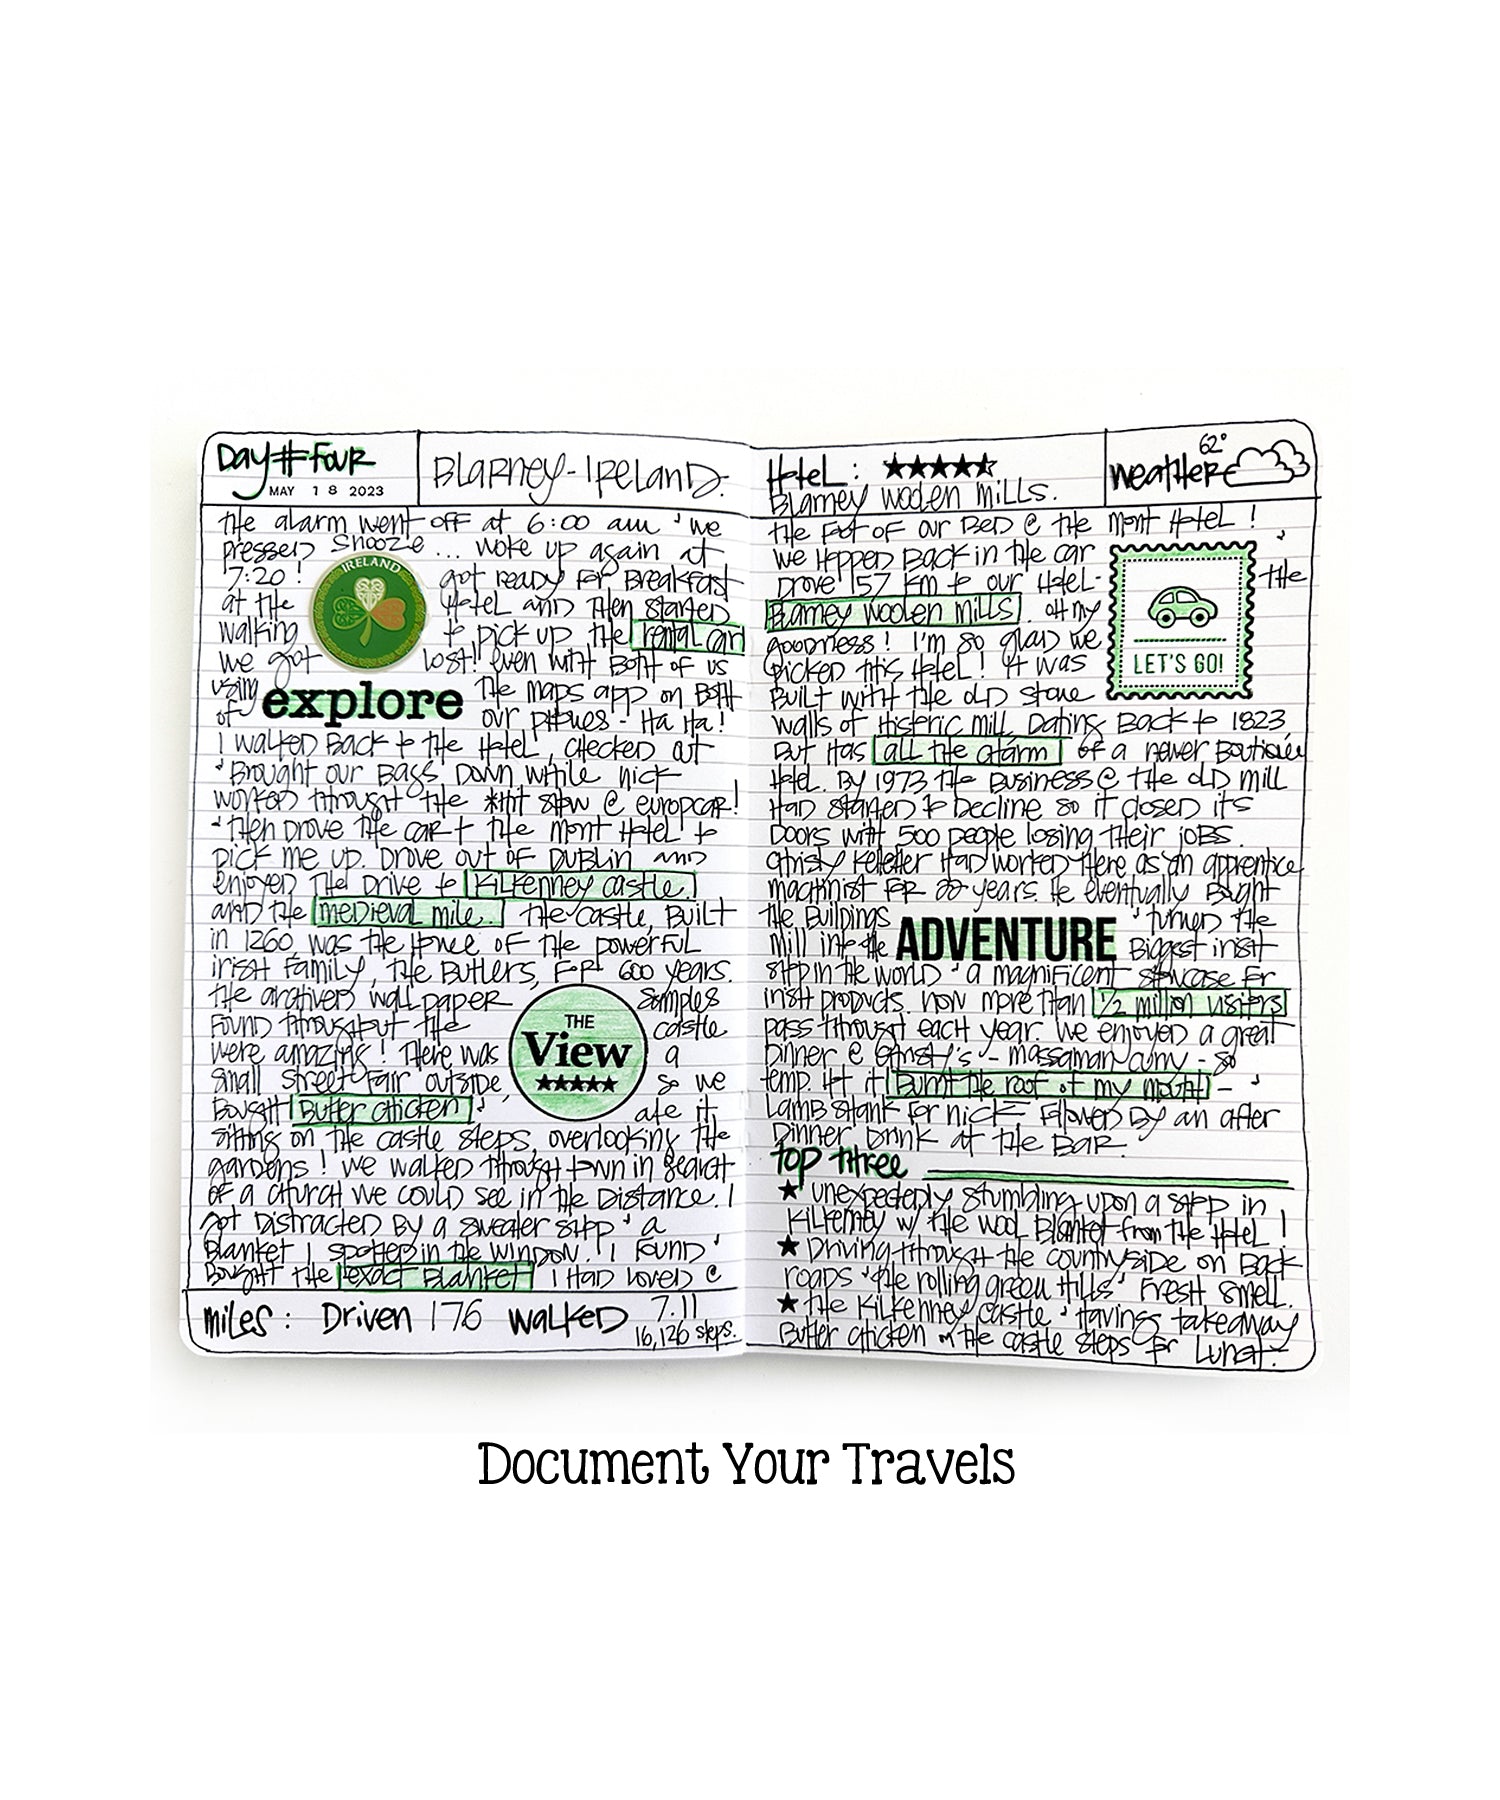 Day # Four
MAY 18 2023
Blarney - Ireland.
the alarm went off at 6:00 am & we
pressed snooze ... woke up again at
7:20! got ready for breakfast
at the hotel and then started
walking to pick up the rental car
we got lost!! even with both of us
using the maps app on both
of our phones - Ha Ha!
explore
IRELAND
I walked back to the hotel, checked out
& brought our bags down while nick
worked through the *hit show @ europcar!
& then drove the car to the mont hotel to
pick me up. Drove out of Dublin and
enjoyed the drive to Kilkenney castle!
and the medieval mile. the castle, built
in 1260 was the home of the powerful
irish family, the Butlers, for 600 years.
the archived wallpaper samples
found throughout the castle
were amazing! There was a
small street fair outside so we
bought Butter chicken & ate it
THE
View
★★★★★
sitting on the castle steps, overlooking the
gardens! we walked through town in search
of a church we could see in the distance. I
got distracted by a sweater shop & a
blanket I spotted in the window! I found &
bought the exact blanket I had loved @
miles: Driven 176 walked 7.11
16,126 steps.
Hotel:
Blarney woolen mills.
62°
weather
the foot of our bed @ the mont hotel!
we hopped back in the car &
drove 157 km to our hotel - the
Blarney woolen mills. oh my
goodness! I'm so glad we
picked this hotel! it was
built with the old stone
LET'S GO!
walls of historic mill, dating back to 1823
but has all the charm of a newer boutique
hotel. By 1973 the business @ the old mill
had started to decline so it closed its
doors with 500 people losing their jobs.
christy kelleher had worked there as an apprentice
machinist for years. He eventually bought
the buildings & turned the
mill into the biggest irish
ADVENTURE
shop in the world & a magnificent showcase for
irish products. now more than 1/2 million visitors
pass through each year. we enjoyed a great
dinner @ christy's - massaman curry - so
temp. hot it Burnt the roof of my mouth - &
lamb shank for nick. followed by an after
dinner drink at the bar.
top three
★ unexpectedly stumbling upon a shop in
Kilkenney w/ the wool blanket from the hotel!
★ Driving through the countryside on back
roads & the rolling green hills & fresh smell.
★ the Kilkenney castle & having takeaway
Butter chicken on the castle steps for lunch.
Document Your Travels